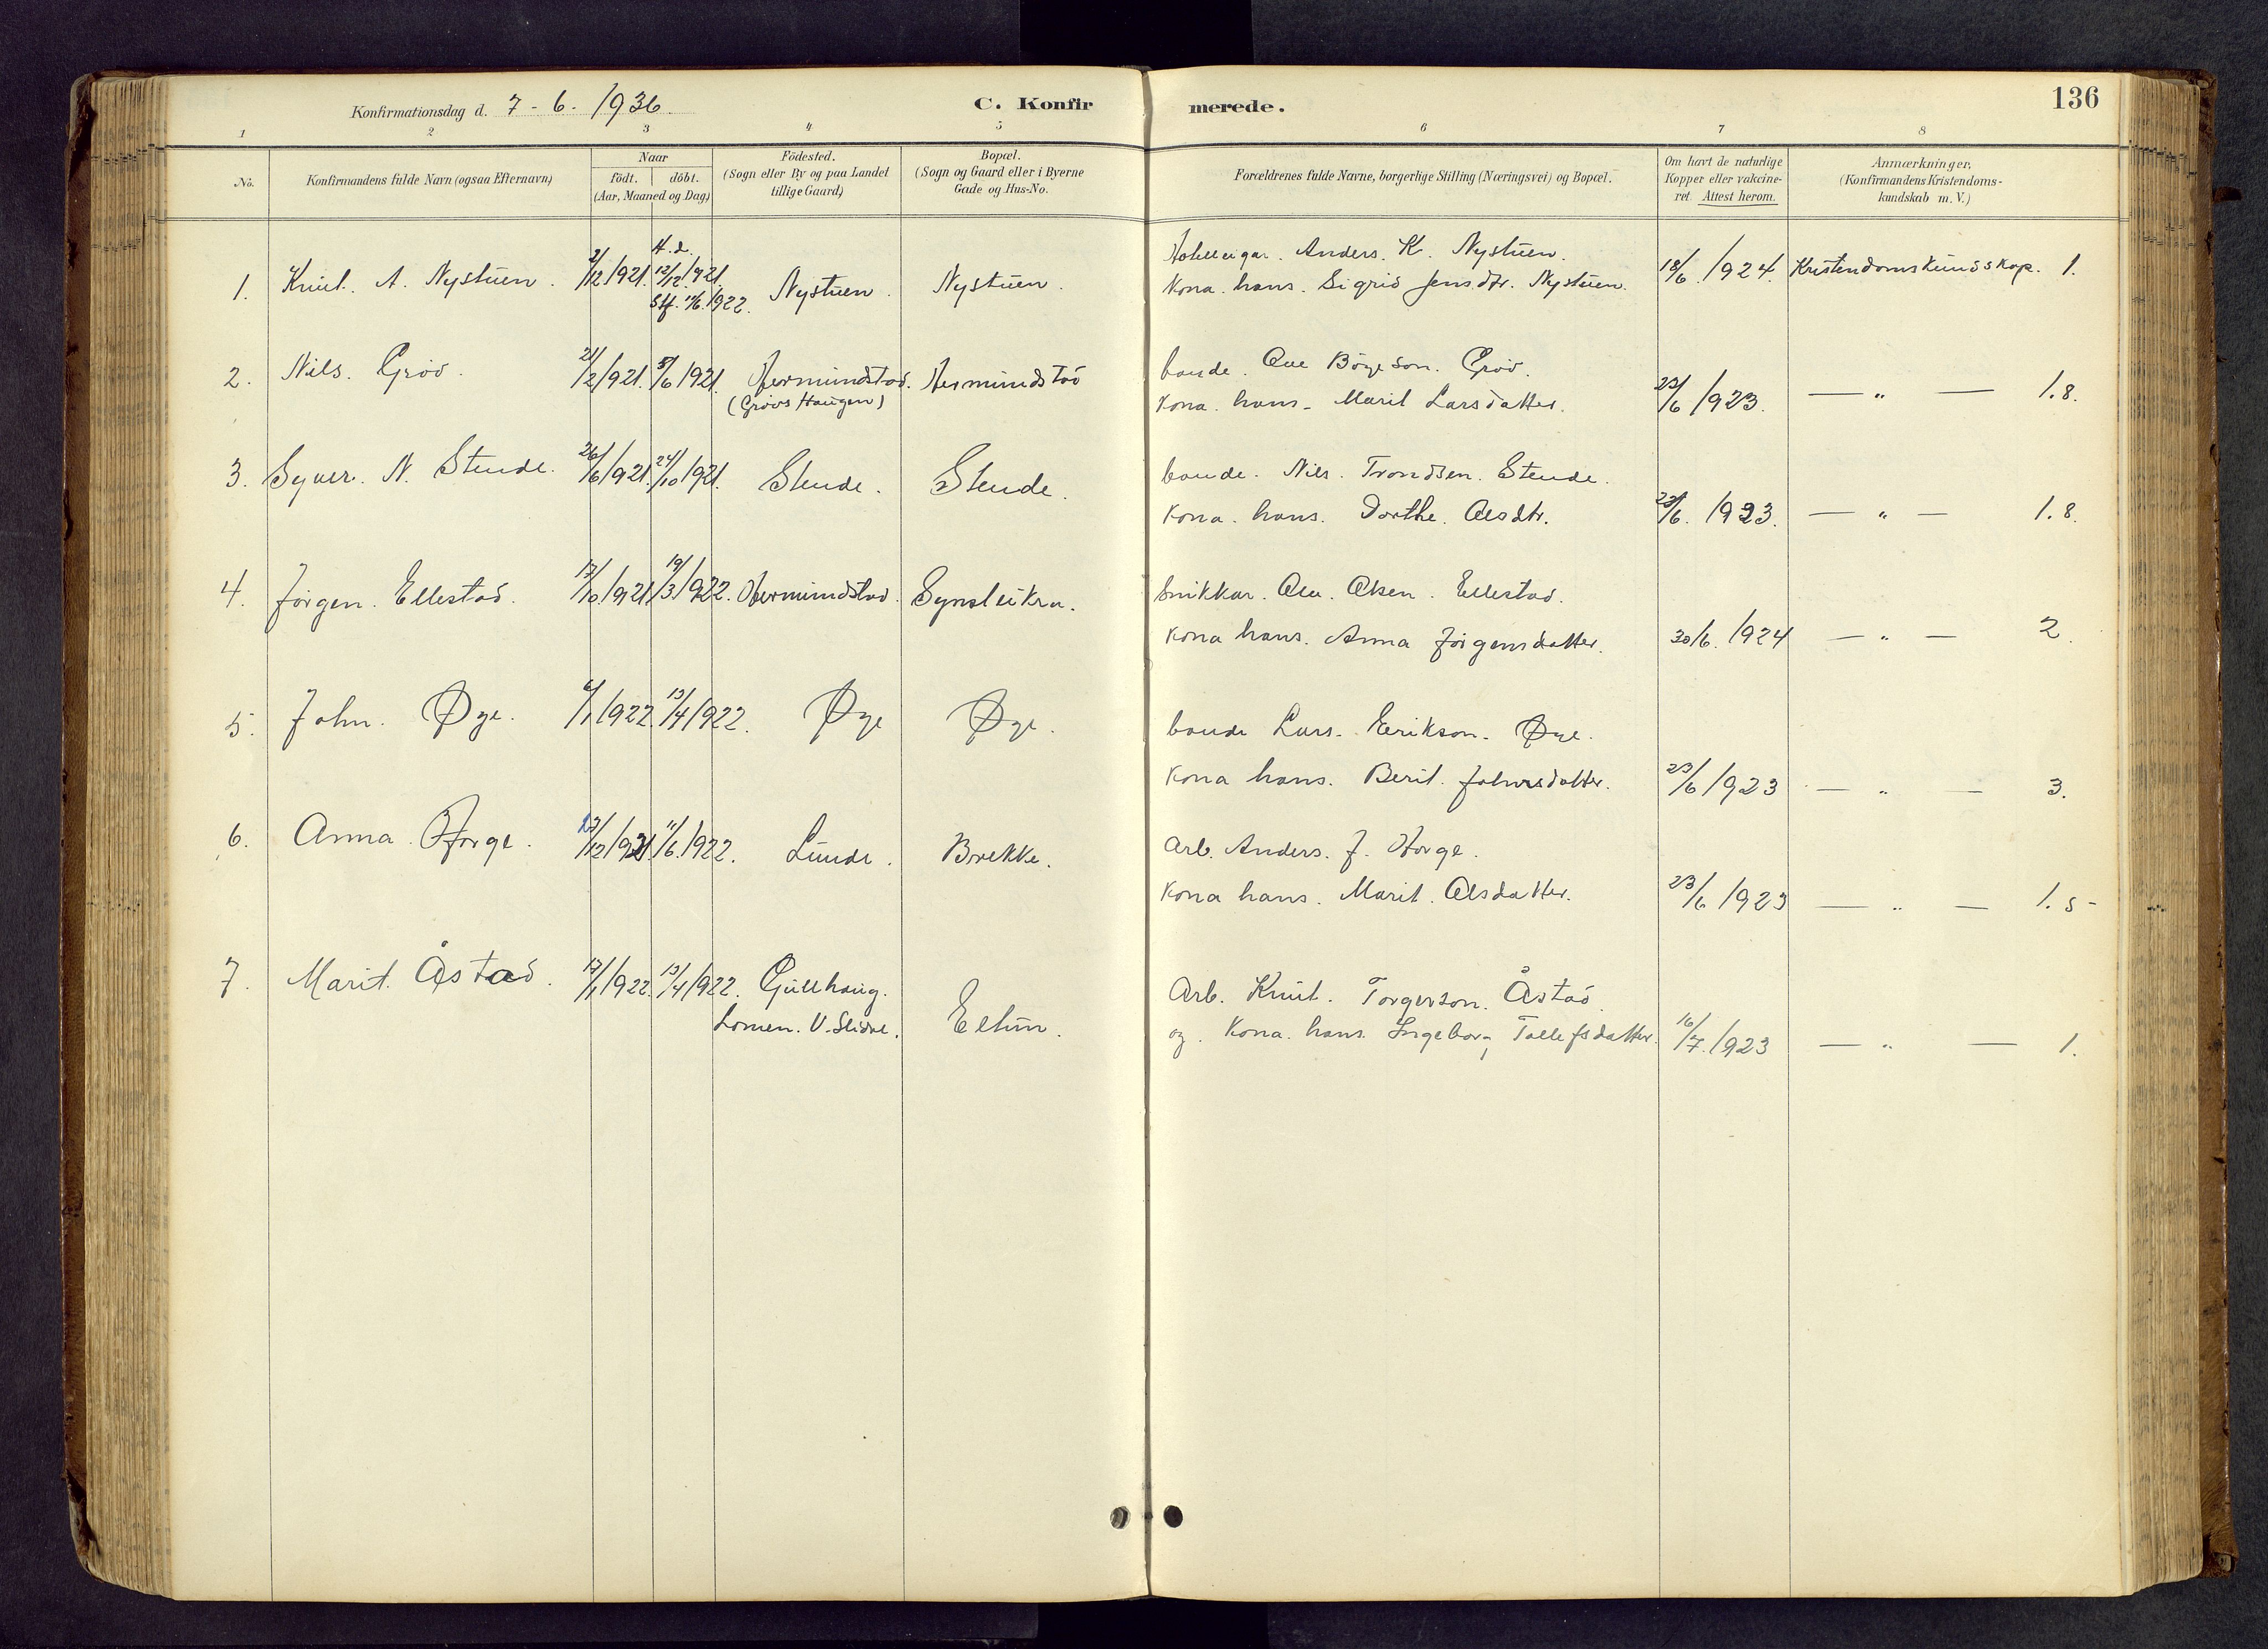 Konfirmationsdag d. 7-6-1936. C. Konfirmerede. 136
1 2 3 4 5 6 7 8
No. Konfirmandens fulde Navn (ogsaa Efternavn) Naar født. døbt. (Aar, Maaned og Dag) Födested. (Sogn eller By og paa Landet tillige Gaard) Bopæl. (Sogn og Gaard eller i Byerne Gade og Hus-No. Forældrenes fulde Navne, borgerlige Stilling (Næringsvei) og Bopæl. Om havt de naturlige Kopper eller vakcineret. Attest herom. Anmærkninger. (Konfirmandens Kristendomskundskab m. V.)
1. Knut. A. Nystuen. 2/12/1921. H.d. 12/12/1921. Stf. 11/6.1922. Nystuen. Nystuen. Hotelleigar. Anders. K. Nystuen.
Kona. hans. Sigrid Jensdtr. Nystuen. 18/6./1924. Kristendomskundskap. 1.
2. Nils. Gröv. 21/2/1921. 5/6/1921. Hermundstad. Hermundstad bonde. Ove Böyeson. Gröv.
(Grövs Haugen) Kona. hans. Marit Larsdatter. 23/6/1923. — " — 1.8.
3. Syver. N. Stende. 26/6/1921. 24/10/1921. Stende. Stende. bonde. Nils. Trondsen. Stende.
Kona. hans. Dorthe. Olsdtr. 23/6. 1923. — " — 1.8.
4. Jörgen. Ellestad. 17/10/1921. 19/3/1922. Hermundstad. Synsleikra. Snikkar. Ola. Olsen. Ellestad.
Kona hans. Anna Jörgensdatter. 30/6./1924 — " — 2.
5. John. Øye. 6/1/1922. 13/4/1922. Øye Øye. bonde Lars. Erikson. Øye.
Kona hans. Berit. Johnsdatter. 23/6/1923 — " — 3.
6. Anna. Horge. 27/12/1921. 11/6./1922. Lunde. Brekke. Arb. Anders. J. Horge.
Kona hans. Marit. Olsdatter. 23/6/1923 — " — 1.5-
7. Marit. Åstad. 17/1/1922. 13/4/1922. Gullhaug. Arb. Knut. Torgerson. Åstad.
Lomen. V. Slidre. Eltun. og. Kona. hans. Ingeborg Tollefsdatter. 16/7./1923 — " — 1.